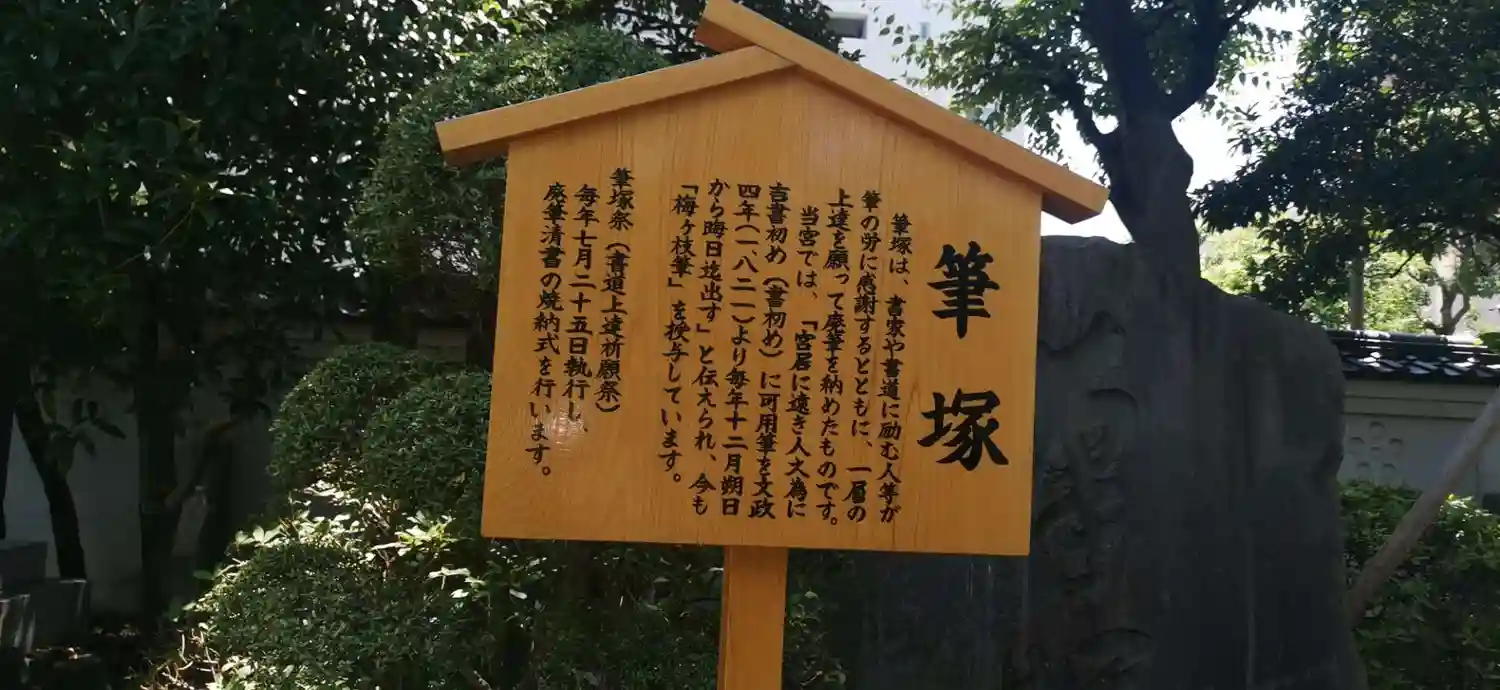 筆塚
筆塚は、書家や書道に励む人等が
筆の労に感謝するとともに、一層の
上達を願って廃筆を納めたものです。
当宮では、「宮居に遠き人文為に
吉書初め(書初め)に可用筆を文政
四年(一八二一)より毎年十二月朔日
から晦日迄出す」と伝えられ、今も
「梅ヶ枝筆」を授与しています。
筆塚祭(書道上達祈願祭)
毎年七月二十五日執行し、
廃筆清書の焼納式を行います。